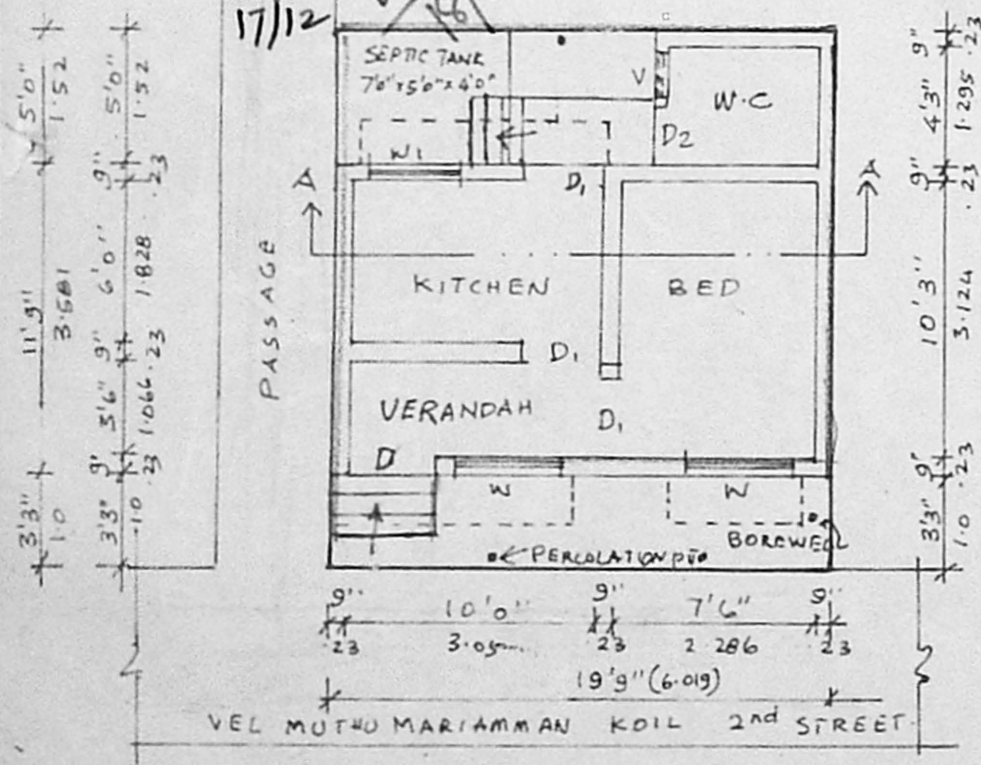 17/12
SEPTIC TANK
7'0"x5'0"x4'0"
V
W.C
D2
W1
D1
A
A
KITCHEN
BED
PASSAGE
D1
VERANDAH
D1
D
W
W
BOREWELL
PERCOLATION PIT
5'0"
1.52
11'9"
3.581
3'3"
1.0
5'0"
1.52
9"
.23
6'0"
1.828
9"
.23
3'6"
1.066
9"
.23
3'3"
1.0
9"
.23
4'3"
1.295
9"
.23
10'3"
3.124
9"
.23
3'3"
1.0
9" 10'0" 9" 7'6" 9"
.23 .23 2.286 .23
19'9" (6.019)
VEL MUTHU MARIAMMAN KOIL 2nd STREET.